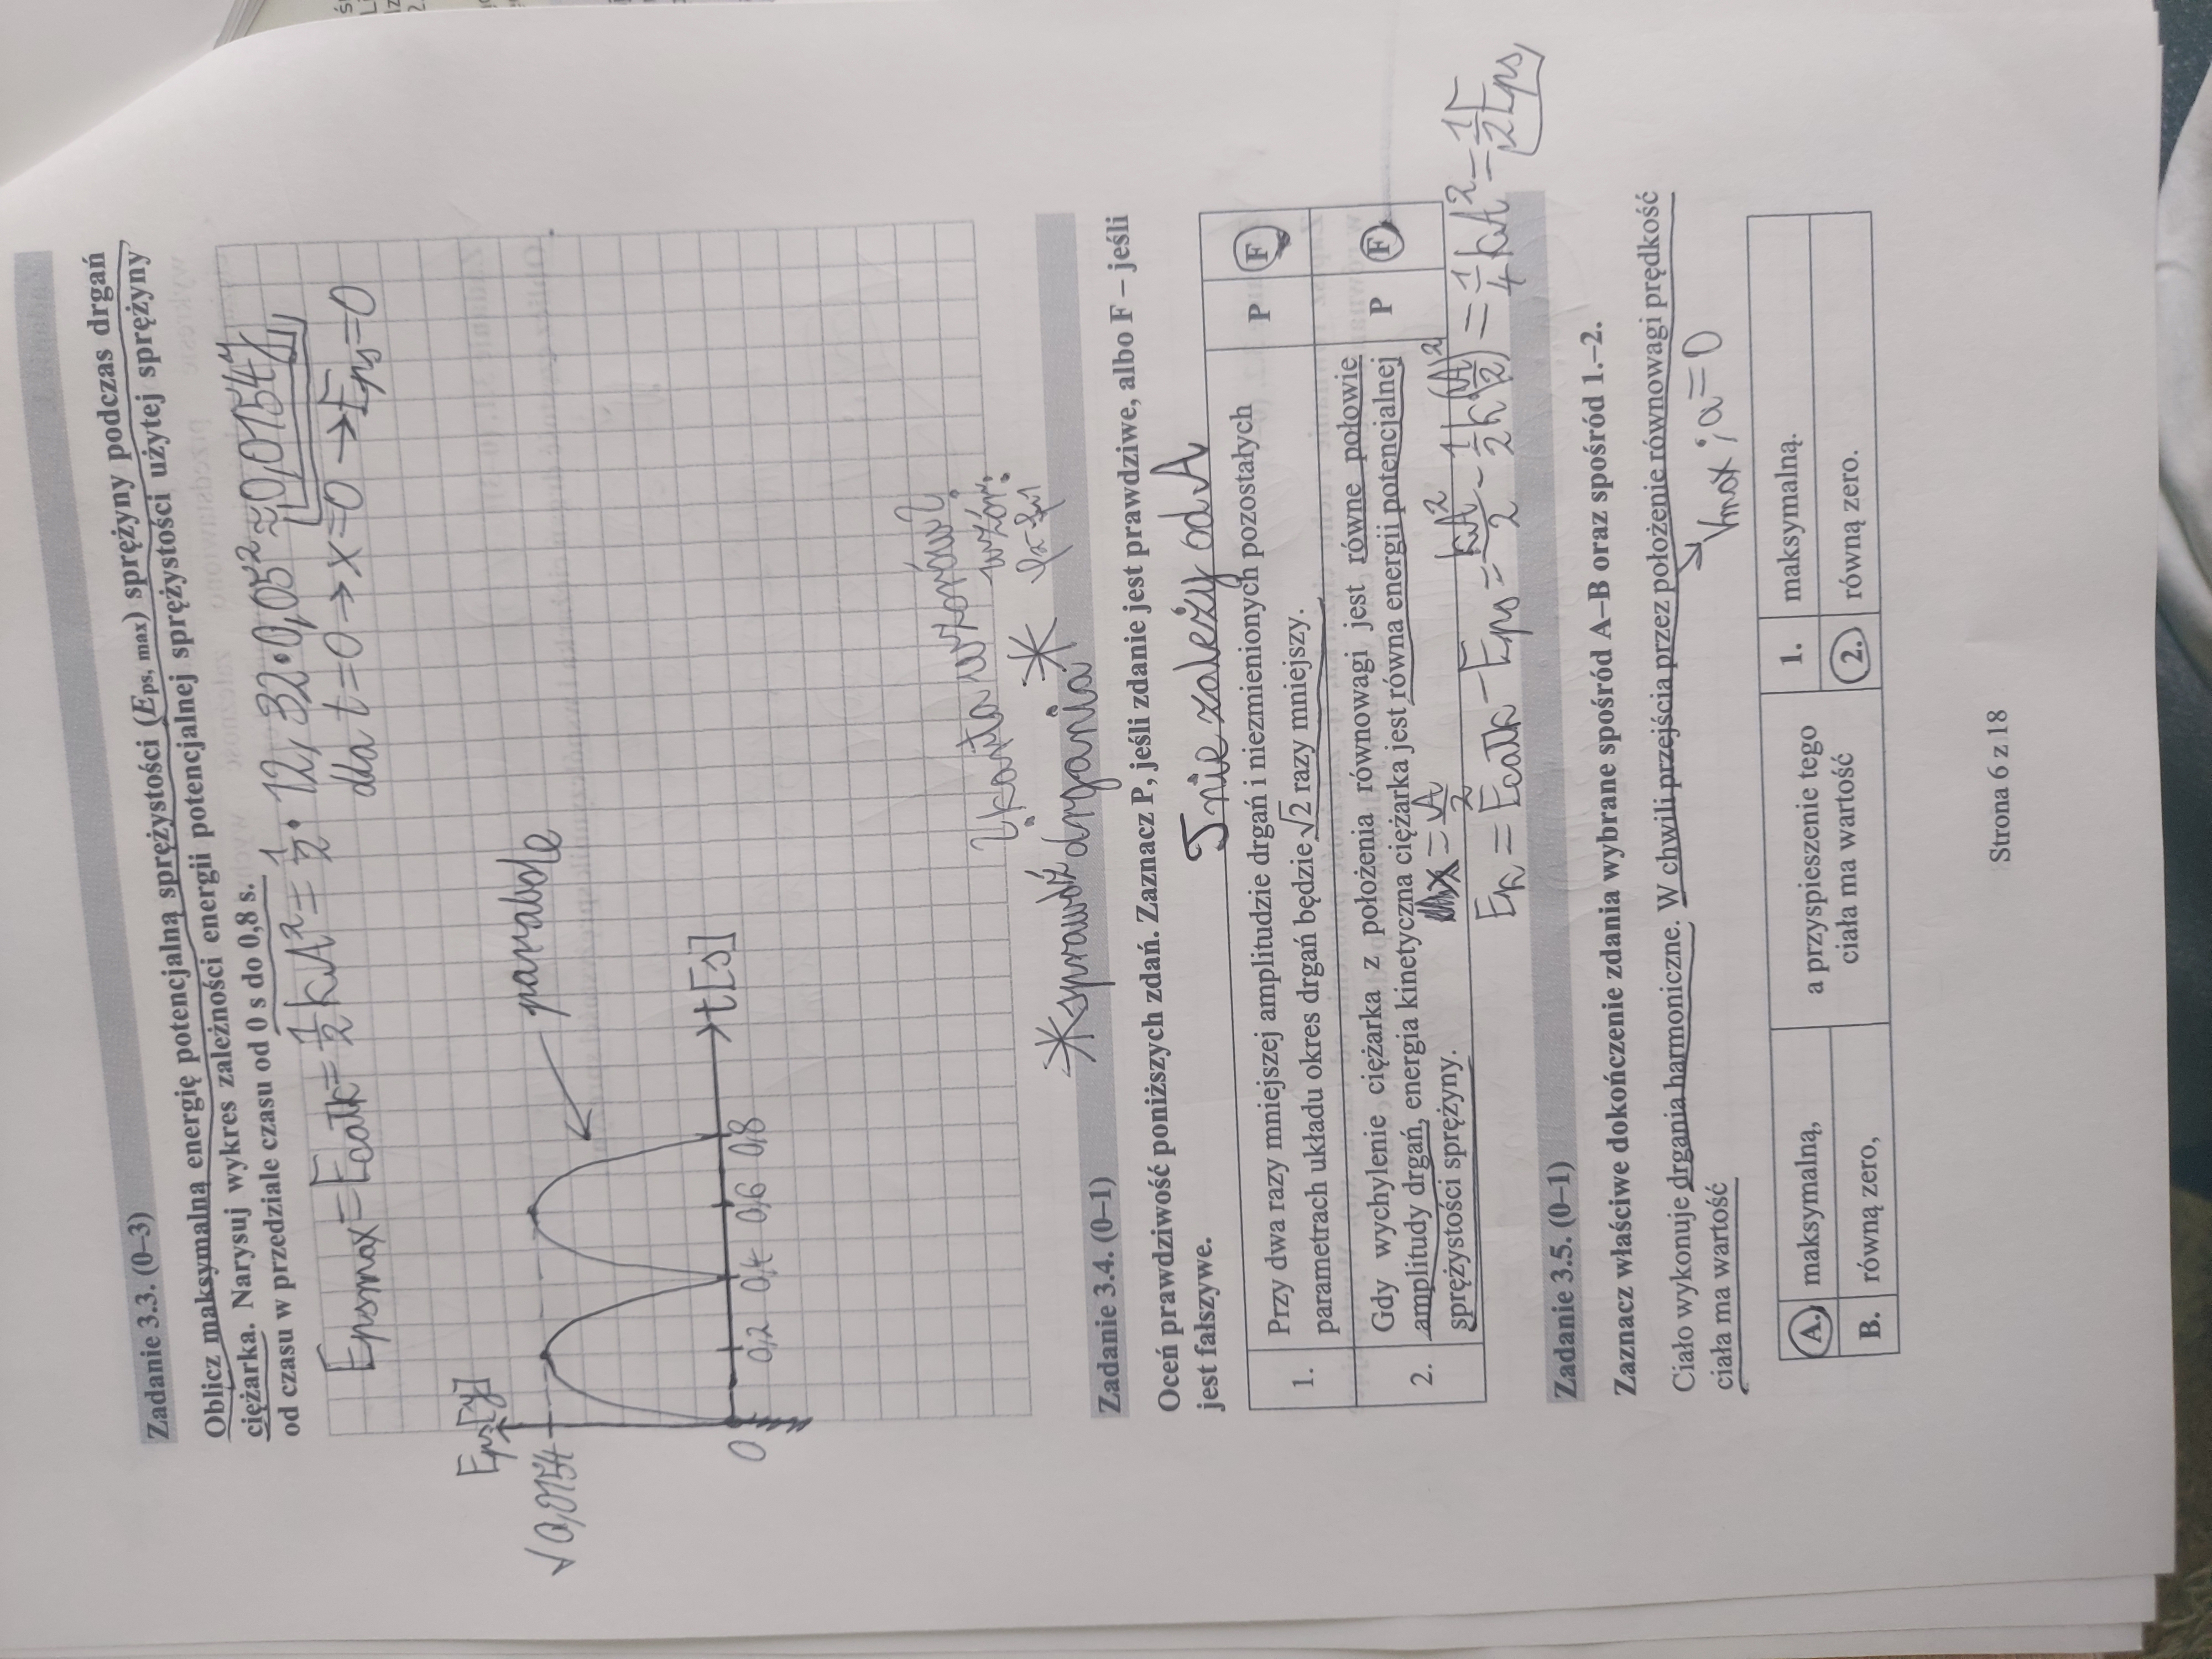 Zadanie 3.3. (0–3)
Oblicz maksymalną energię potencjalną sprężystości (Eps, max) sprężyny podczas drgań
ciężarka. Narysuj wykres zależności energii potencjalnej sprężystości użytej sprężyny
od czasu w przedziale czasu od 0 s do 0,8 s.
Epsmax = Ecałk = 1/2 kA² = 1/2 · 12,32 · 0,05² ≈ 0,0154 J
dla t=0 → x=0 → Eps=0
Eps [J]
0,0154
parabole
0
0,2 0,4 0,6 0,8
t[s]
*sprawdź drgania *
Zadanie 3.4. (0–1)
Oceń prawdziwość poniższych zdań. Zaznacz P, jeśli zdanie jest prawdziwe, albo F – jeśli
jest fałszywe.
nie zależy od A
1. Przy dwa razy mniejszej amplitudzie drgań i niezmienionych pozostałych
parametrach układu okres drgań będzie √2 razy mniejszy. P F
2. Gdy wychylenie ciężarka z położenia równowagi jest równe połowie
amplitudy drgań, energia kinetyczna ciężarka jest równa energii potencjalnej
sprężystości sprężyny. P F
x = A/2
Ek = Ecałk - Eps = kA²/2 - 1/2 k (A/2)² = 1/4 kA² = 1/2 Eps
Zadanie 3.5. (0–1)
Zaznacz właściwe dokończenie zdania wybrane spośród A–B oraz spośród 1.–2.
Ciało wykonuje drgania harmoniczne. W chwili przejścia przez położenie równowagi prędkość
ciała ma wartość
Vmax ; a=0
A. maksymalną,
B. równą zero,
a przyspieszenie tego
ciała ma wartość
1. maksymalną.
2. równą zero.
Strona 6 z 18